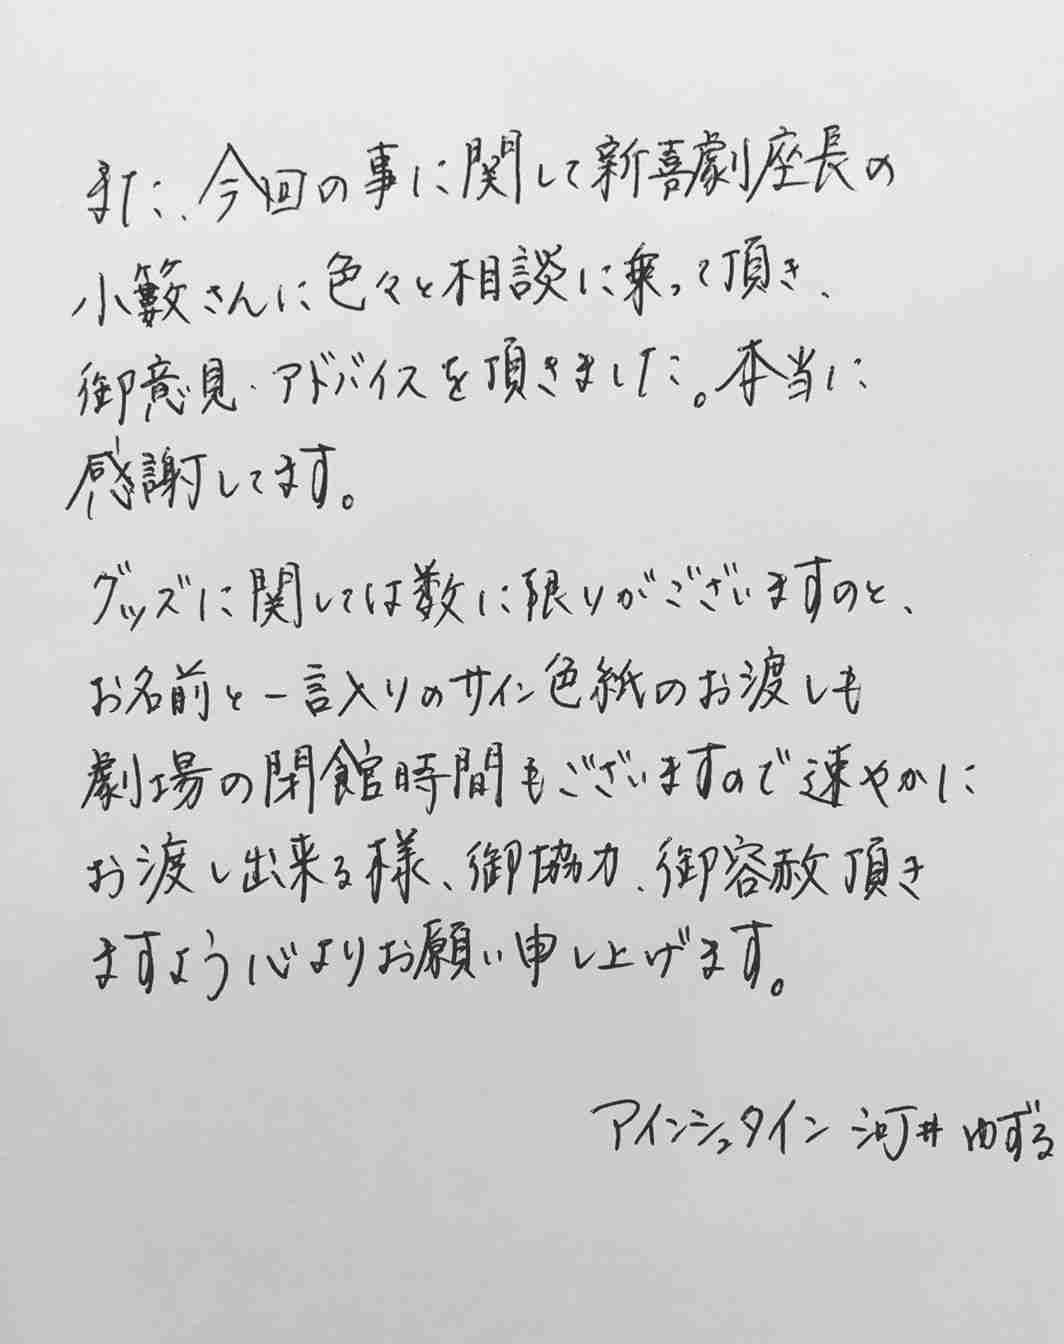 また、今回の事に関して新喜劇座長の
小籔さんに色々と相談に乗って頂き、
御意見・アドバイスを頂きました。本当に
感謝してます。
グッズに関しては数に限りがございますのと、
お名前と一言入りのサイン色紙のお渡しも
劇場の閉館時間もございますので速やかに
お渡し出来る様、御協力、御容赦頂き
ますよう心よりお願い申し上げます。
アインシュタイン 河井ゆずる